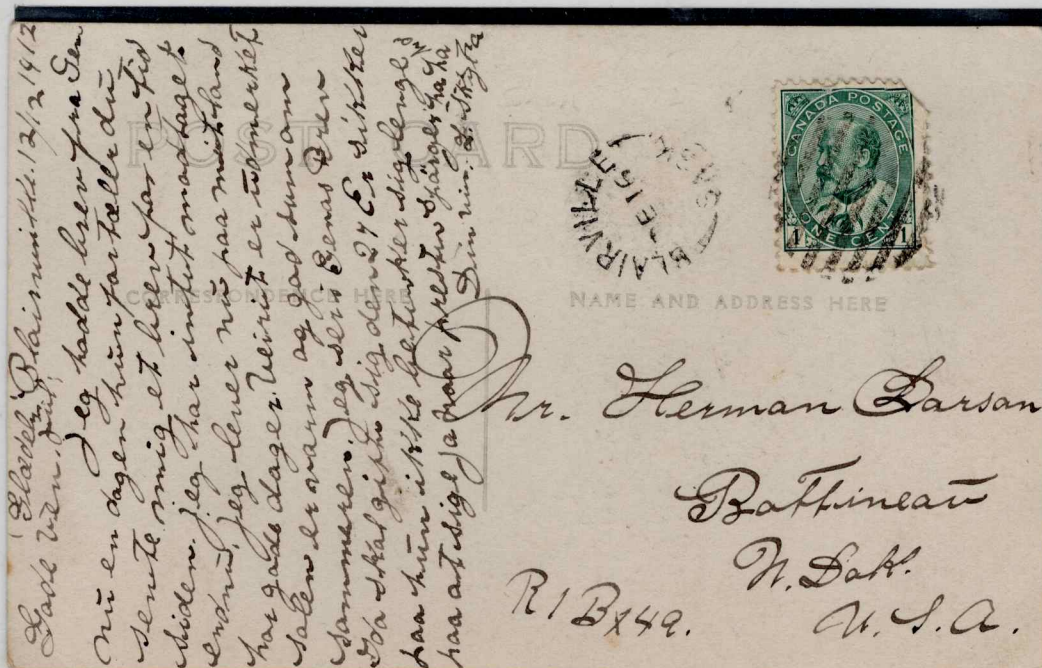 Glædelig Jul
Blairmukk. 12/12 1912
Gode ven.
Jeg hadde brev fra Gen
nu en dagen hun fortæller du
sente mig et brev for en tid
siden. Jeg har intet mottaget
endnu, Jeg lever nu paa mit land
har gode dager Veiret er udmerket
solen er varm og god sum om
sommeren. Jeg ser Genas Bren
Ida skal gifte sig den 24 Er sikker
paa hun ikke betenker sig lenge
paa at sige Ja naar presten spörger
ha ha
Din ven.
POST CARD
CORRESPONDENCE HERE
NAME AND ADDRESS HERE
BLAIRVILLE
DE 16
SASK
CANADA POSTAGE
1 ONE CENT 1
Mr. Herman Larson
Bottineau
N. Dak.
R 1 Bx 49.
U. S. A.